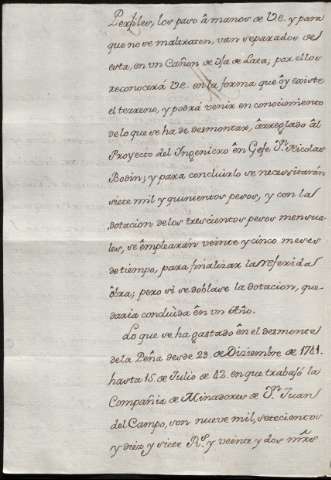 Perfiles, los paso â manos de V.E. y para
que no se maltraten, van separados de
esta, en un Cañon de oja de Lata; por ellos
reconocerá V.E. en la forma que oy existe
el terreno, y podrá venir en conocimiento
de lo que se ha de desmontar, arreglado âl
Proyecto del Ingeniero ên Gefe Dn. Nicolas
Bodin; y para concluirlo se necessitarán
siete mil y quinientos pesos, y con la
dotacion de los trescientos pesos mensua-
les, se êmplearán veinte y cinco meses
de tiempo, para finalizar la referida
ôbra; pero si se doblase la dotacion, que-
daria concluida ên un Año.
Lo que se ha gastado ên el desmonte
de la Peña desde 23 de Diciembre de 1741.
hasta 15 de Julio de 42. en que trabajó la
Compañia de Minadores de Dn. Juan
del Campo, son nueve mil, setecientos
y diez y siete Rs. y veinte y dos mrs.